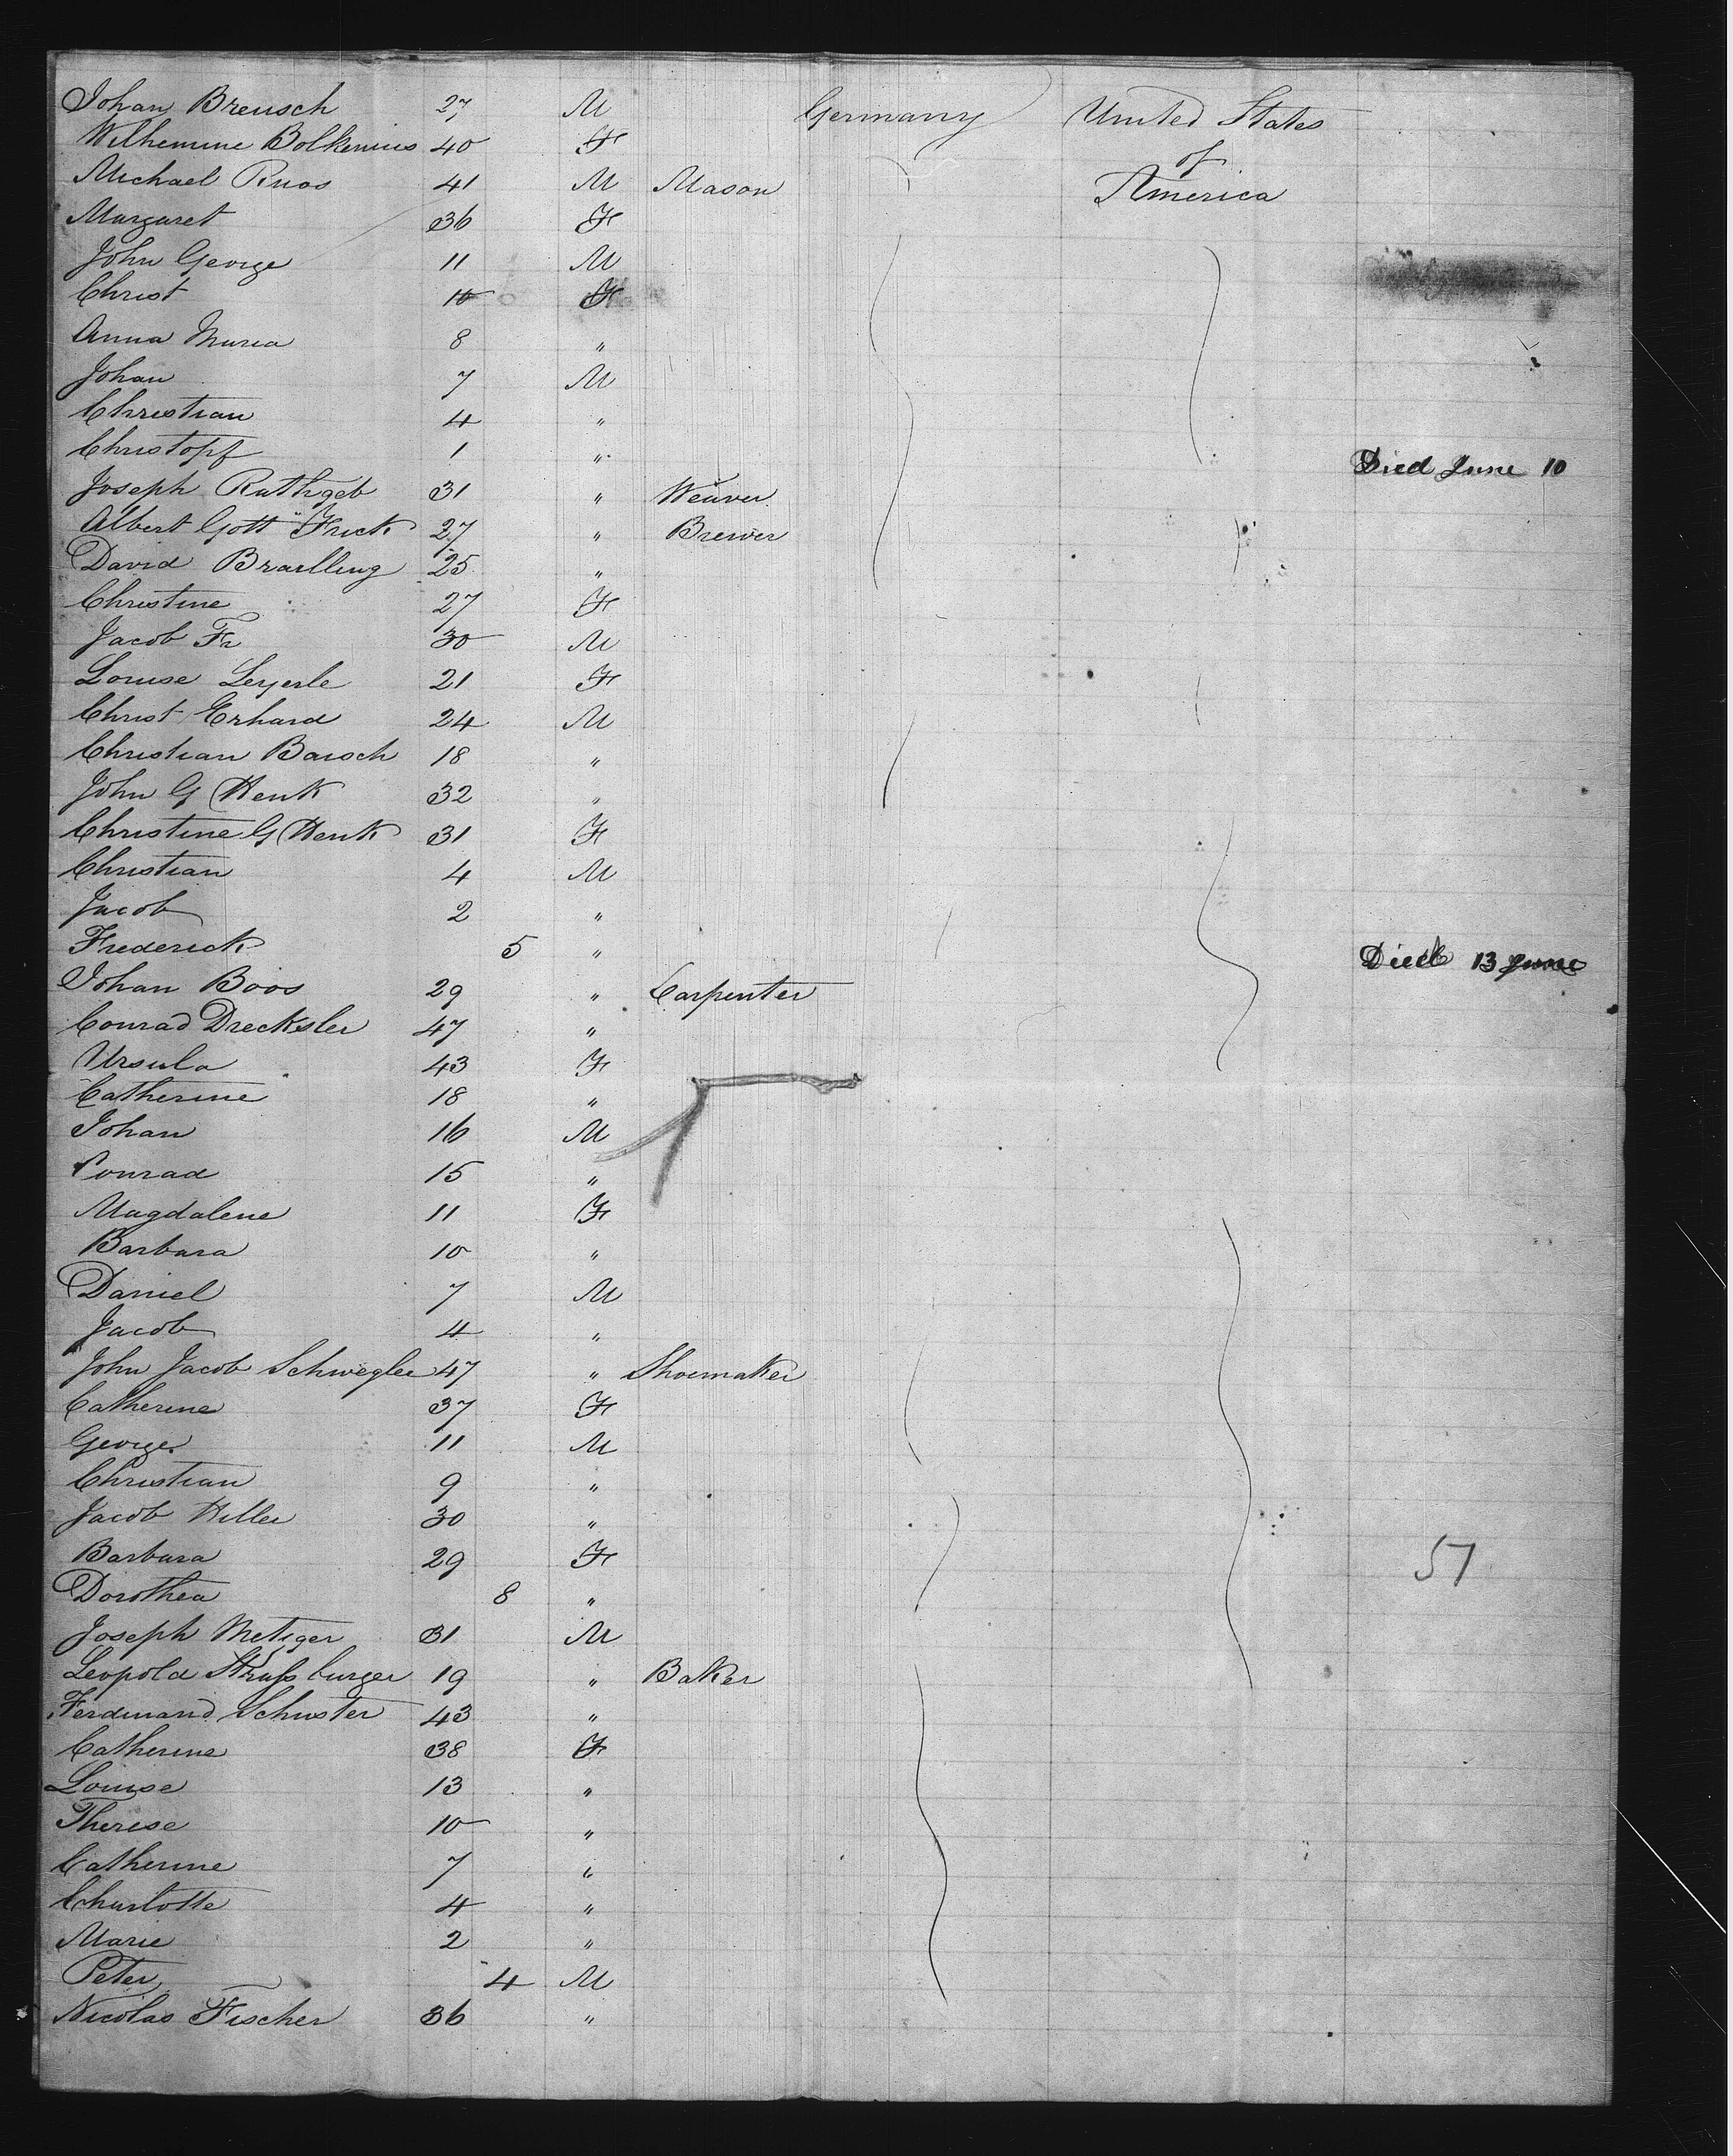 Johan Breusch 27 M Germany United States
Wilhemine Bolkenius 40 F of
Michael Ruos 41 M Mason America
Margaret 36 F
John George 11 M
Christ 10 F
Anna Maria 8 "
Johan 7 M
Christian 4 "
Christopf 1 " Died June 10
Joseph Rathgeb 31 " Weaver
Albert Gott Frick 27 " Brewer
David Brailling 25 "
Christine 27 F
Jacob Fr 30 M
Louise Leyerle 21 F
Christ Erhard 24 M
Christian Baisch 18 "
John G Henk 32 "
Christine G Henk 31 F
Christian 4 M
Jacob 2 "
Frederick 5 " Died 13 June
Johan Boos 29 " Carpenter
Conrad Drecksler 47 "
Ursula 43 F
Catherine 18 "
Johan 16 M
Conrad 15 "
Magdalene 11 F
Barbara 10 "
Daniel 7 M
Jacob 4 "
John Jacob Schwegler 47 " Shoemaker
Catherine 37 F
George 11 M
Christian 9 "
Jacob Hiller 30 "
Barbara 29 F 57
Dorothea 8 "
Joseph Metzger 31 M
Leopold Straßburger 19 " Baker
Ferdinand Schuster 43 "
Catherine 38 F
Louise 13 "
Therese 10 "
Catherine 7 "
Charlotte 4 "
Marie 2 "
Peter 4 M
Nicolas Fischer 36 "